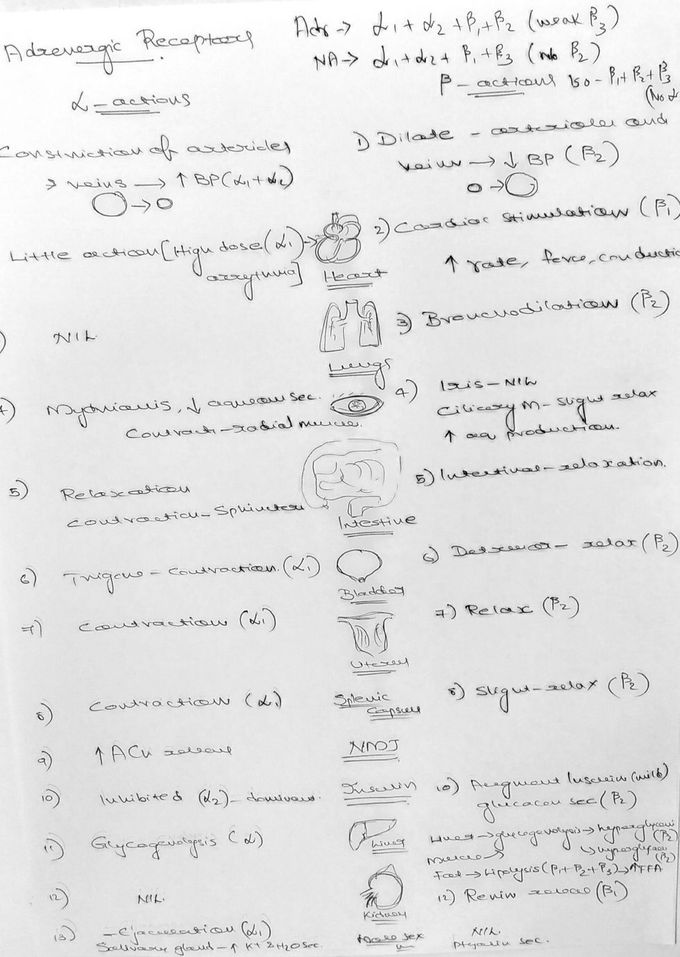 Adrenergic Receptors
Adr → α1 + α2 + β1 + β2 (weak β3)
NA → α1 + α2 + β1 + β3 (No β2)
α-actions
β-actions Iso - β1 + β2 + β3
(No α
Constriction of arterioles
& veins → ↑ BP (α1 + α2)
1) Dilate - arterioles and
veins → ↓ BP (β2)
Little action [High dose (α1) →
arrythmia]
Heart
2) Cardiac Stimulation (β1)
↑ rate, force, conductio
) NIL
Lungs
3) Bronchodilation (β2)
4) Mydriasis, ↓ aqueous sec.
Contract - radial muscle.
4) Iris - NIL
Ciliary M - Slight relax
↑ aq production.
5) Relaxation
Contraction - Sphincter
Intestine
5) Intestinal - relaxation.
6) Trigone - Contraction. (α1)
Bladder
6) Detrusor - relax (β2)
7) Contraction (α1)
Uterus
7) Relax (β2)
8) Contraction (α1)
Splenic
Capsule
8) Slight - relax (β2)
9) ↑ ACh release
NMJ
10) Inhibited (α2) - dominant.
Insulin
10) Augment Insulin (mild)
glucagon sec (β2)
11) Glycogenolysis (α)
Liver
Liver → glycogenolysis → hyperglycemi
(β2)
Muscle →
(β2)
Fat → Lipolysis (β1 + β2 + β3) → ↑ FFA
12) NIL
Kidney
12) Renin release (β1)
13) - Ejaculation (α1)
Salivary gland - ↑ K+ & H2O sec.
Male sex
NIL.
Ptyalin sec.